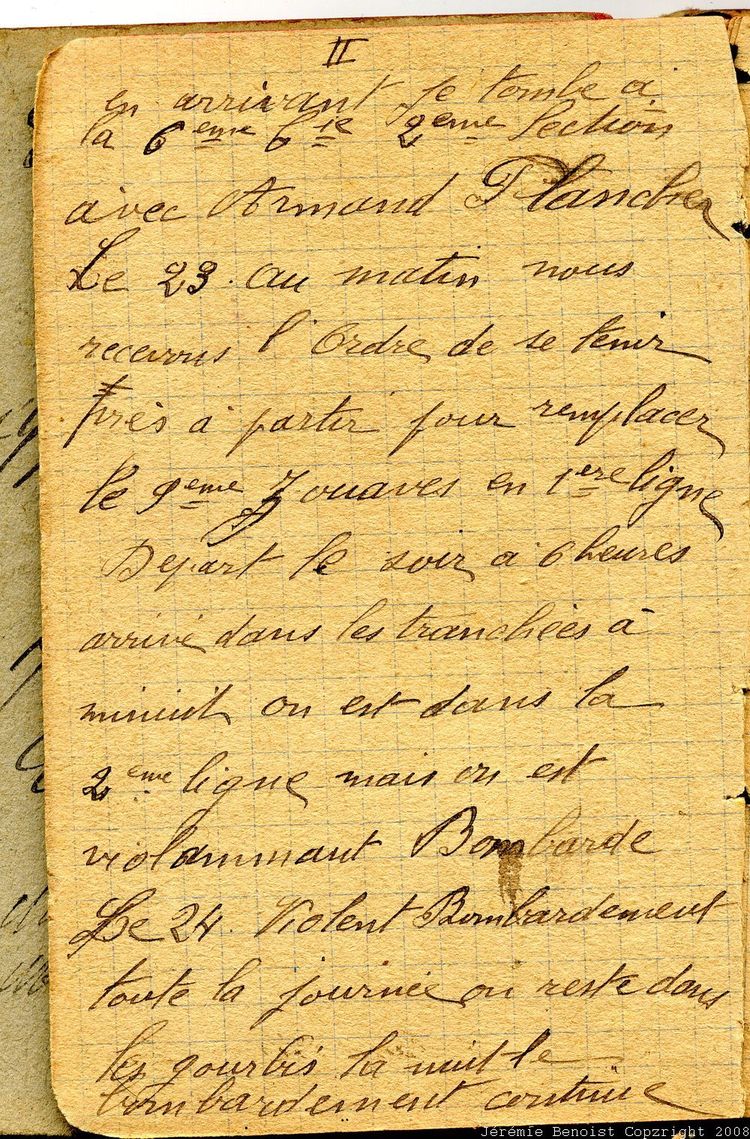 II
en arrivant je tombe à
la 6eme Cie 2eme Section
avec Armand Plancher
Le 23 au matin nous
recevons l'Ordre de se tenir
près à partir pour remplacer
le 9eme Zouaves en 1ere ligne
Depart le soir à 6 heures
arrivé dans les tranchées à
minuit on est dans la
2eme ligne mais on est
violammant Bombarde
Le 24. Violent Bombardement
toute la journée on reste dans
les gourbis la nuit le
bombardement continue
Jérémie Benoist Copzright 2008